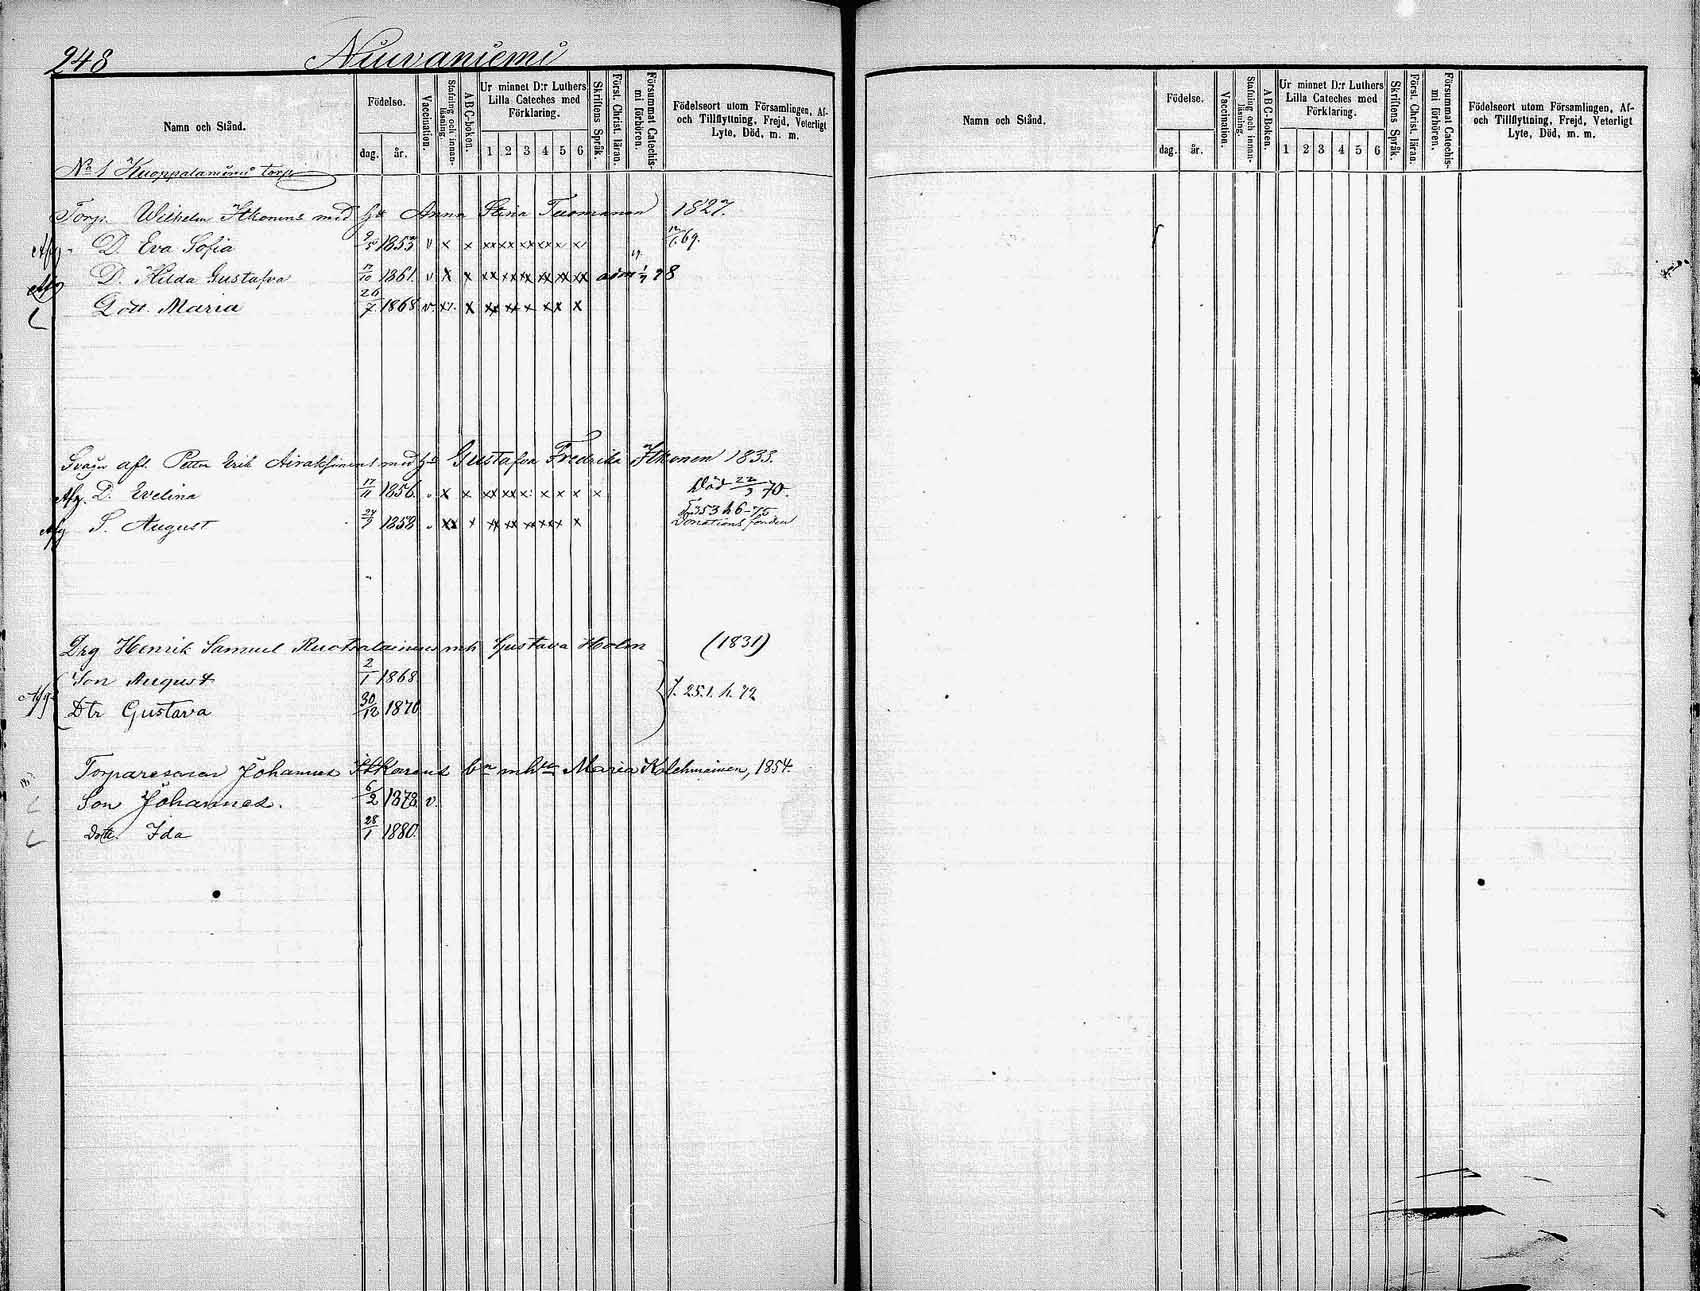 248 Niuvaniemi
Namn och Stånd. Födelse. dag. år. Vaccination. Stafning och innanläsning. ABC-boken. Ur minnet D:r Luthers Lilla Cateches med Förklaring. 1 2 3 4 5 6 Skriftens Språk. Först. Christ. läran. Försummat Catechismi förhören. Födelseort utom Församlingen, Af- och Tillflyttning, Frejd, Veterligt Lyte, Död, m. m.
No 1 Kuoppalaniemi torp
Torp. Wilhelm Itkonens med h:u Anna Stina Tuomanen 1827.
Afg. D. Eva Sofia 1853 v x x xx xx xx xx x x 69.
Afg D. Hilda Gustafva 17/10 1861 v x x xx xx xx xx xx xx
Dott. Maria 26/7 1868 v. x x
Svåger afl. Petter Erik Airaksinens med h:u Gustafva Fredrika Itkonen 1833.
Afg. D. Evelina 17/11 1856. x x Död 22/3 70.
Afg S. August 24/9 1858 xx x Donations fonden
Drg Henrik Samuel Ruotsalainens mh Gustava Holm (1831)
Son August 2/1 1868
Afg Dtr Gustava 30/12 1870 f. 25.1. h. 72
Torparesonen Johannes Itkonens b:n mh:u Maria Kolehmainen, 1854.
Son Johannes. 6/2 1878 v.
Dott. Ida 28/1 1880.
Namn och Stånd. Födelse. dag. år. Vaccination. Stafning och innanläsning. ABC-Boken. Ur minnet D:r Luthers Lilla Cateches med Förklaring. 1 2 3 4 5 6 Skriftens Språk. Först. Christ. läran. Försummat Catechismi förhören. Födelseort utom Församlingen, Af- och Tillflyttning, Frejd, Veterligt Lyte, Död, m. m.